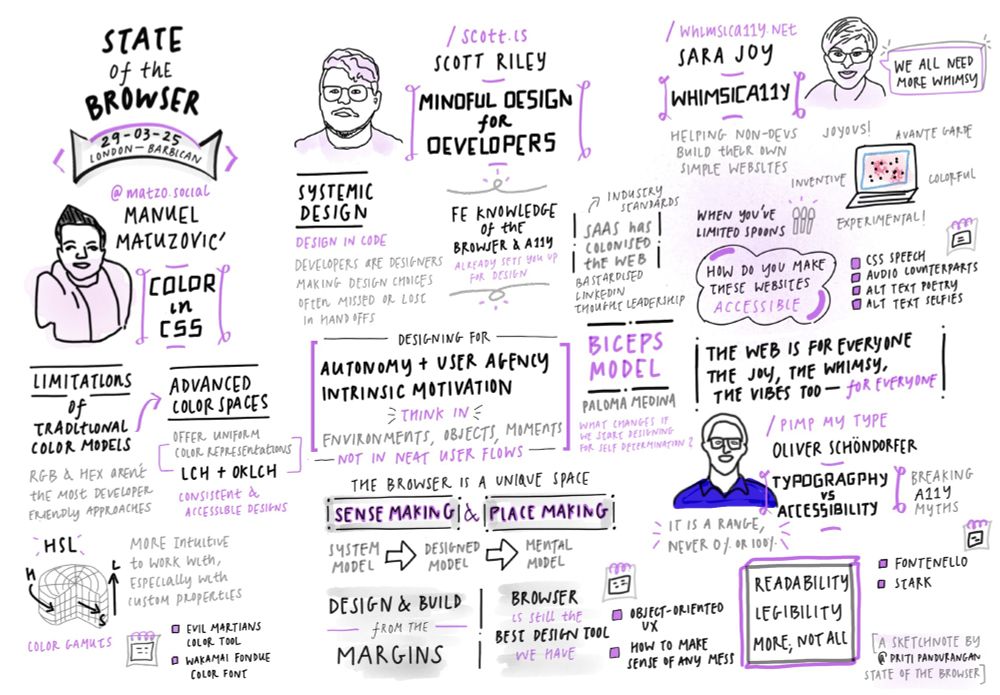 STATE
of the
BROWSER
29-03-25
LONDON — BARBICAN
@matzo.social
MANUEL
MATUZOVIC'
COLOR
in
CSS
LIMITATIONS
of
TRADITIONAL
COLOR MODELS
RGB & HEX AREN'T
the MOST DEVELOPER
FRIENDLY APPROACHES
ADVANCED
COLOR SPACES
OFFER UNIFORM
COLOR REPRESENTATIONS
LCH + OKLCH
CONSISTENT &
ACCESSIBLE DESIGNS
HSL
H
L
S
COLOR GAMUTS
MORE INTUITIVE
to WORK WITH,
ESPECIALLY WITH
CUSTOM PROPERTIES
EVIL MARTIANS
COLOR TOOL
WAKAMAI FONDUE
COLOR FONT
/scott.is
SCOTT RILEY
MINDFUL DESIGN
for
DEVELOPERS
SYSTEMIC
DESIGN
DESIGN IN CODE
DEVELOPERS ARE DESIGNERS
MAKING DESIGN CHOICES
OFTEN MISSED OR LOST
IN HANDOFFS
FE KNOWLEDGE
of the
BROWSER & A11Y
ALREADY SETS YOU UP
FOR DESIGN
INDUSTRY
STANDARDS
SAAS has
COLONISED
the WEB
BASTARDISED
LINKEDIN
THOUGHT LEADERSHIP
DESIGNING FOR
AUTONOMY + USER AGENCY
INTRINSIC MOTIVATION
THINK IN
ENVIRONMENTS, OBJECTS, MOMENTS
NOT IN NEAT USER FLOWS
BICEPS
MODEL
PALOMA MEDINA
WHAT CHANGES IF
WE START DESIGNING
FOR SELF DETERMINATION?
THE BROWSER IS A UNIQUE SPACE
SENSE MAKING & PLACE MAKING
SYSTEM
MODEL
DESIGNED
MODEL
MENTAL
MODEL
DESIGN & BUILD
FROM THE
MARGINS
BROWSER
is still the
BEST DESIGN TOOL
WE HAVE
OBJECT-ORIENTED
UX
HOW TO MAKE
SENSE OF ANY MESS
/WHIMSICA11Y.NET
SARA JOY
WHIMSICA11Y
WE ALL NEED
MORE WHIMSY
HELPING NON-DEVS
BUILD THEIR OWN
SIMPLE WEBSITES
JOYOUS!
AVANTE GARDE
INVENTIVE
COLORFUL
EXPERIMENTAL!
WHEN YOU'VE
LIMITED SPOONS
HOW DO YOU MAKE
THESE WEBSITES
ACCESSIBLE
CSS SPEECH
AUDIO COUNTERPARTS
ALT TEXT POETRY
ALT TEXT SELFIES
THE WEB IS FOR EVERYONE
THE JOY, THE WHIMSY,
THE VIBES TOO — FOR EVERYONE
/PIMP MY TYPE
OLIVER SCHÖNDORFER
TYPOGRAGPHY
VS
ACCESSIBILITY
BREAKING
A11Y
MYTHS
IT IS A RANGE,
NEVER 0% OR 100%.
READABILITY
LEGIBILITY
MORE, NOT ALL
FONTENELLO
STARK
[A SKETCHNOTE BY
@PRITI PANDURANGAN
STATE OF THE BROWSER]